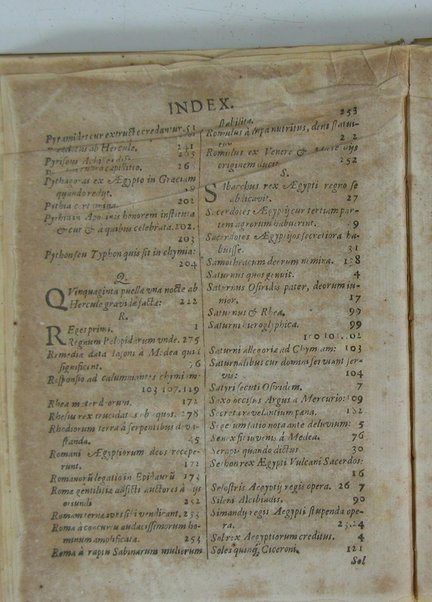 INDEX.
Pyramides cur extructæ credantur 51
ab Hercule. 241
205
26
Pythagoras ex Ægypto in Græciam
quando redijt.
Pythia certamina. 202
Pythia in Apollinis honorem instituta
& cur & a quibus celebrata. 202.
203
Pythonseu Typhon quis sit in chymia:
204
Q.
Quinquaginta puellæ vna nocte ab
Hercule grauidæ factæ: 222
R.
Rege primi. 1
Regnum Pelopidarum vnde. 275
Remedia data Iasoni a Medea quid
significent. 76
Responsio ad calumniantes chimiam:
103 107. 129
Rhea mater deorum. 172
Rhesus rex trucidatus ob equos. 278
Rhodiorum terra à serpentibus deva-
standa. 45
Romani Ægyptiorum deos recepe-
runt. 172
Romanorū legatio in Epidaurū 173
Romæ gentilitiæ
252
Roman 253
Roma à concursu audacissimorum ho-
minum amplificata. 253
Roma à raptu Sabinarum mulierum
stabilita. 253
Romulus à lupa nutritus, deus statui-
tur 2 2
Romulus ex Venere &
originem ducit. 252
S.
Sibacchus rex Ægypti regno se
abdicavit. 27
Sacerdotes Ægyptij cur tertiam par-
tem agrorum habuerint. 9
Sacerdotes Ægyptijos secretiora ha-
buisse. 31
Samothracum deorum nomina. 128
Saturnus quos genuit. 4
Saturnus Osiridis pater, deorum iu-
nior. 17
Saturnus & Rhea. 99
Saturni hieroglyphica. 99
100 101. 02
Saturni allegoria ad Chymiam: 103
Saturnalibus cur domini serviant ser-
vis: 104
Satyri secuti Osiridem. 7
Saxo occisus Argus a Mercurio: 109
Secreta revelantium pœna. 182
Segeum ratio nota ante deluvium: 5
Senex fit iuvenis à Medea. 76
Serapis quando dictus 30
Sethon rex Ægypti Vulcani Sacerdos:
16
Sesostris Aegyptij regis opera. 26 7
Sileni Alcibiadis. 90
Simandij regis Aegypti stupenda ope-
ra. 23. 24
Sol rex Aegyptiorum creditus. 4
Soles quinq; Ciceroni. 121
Sol